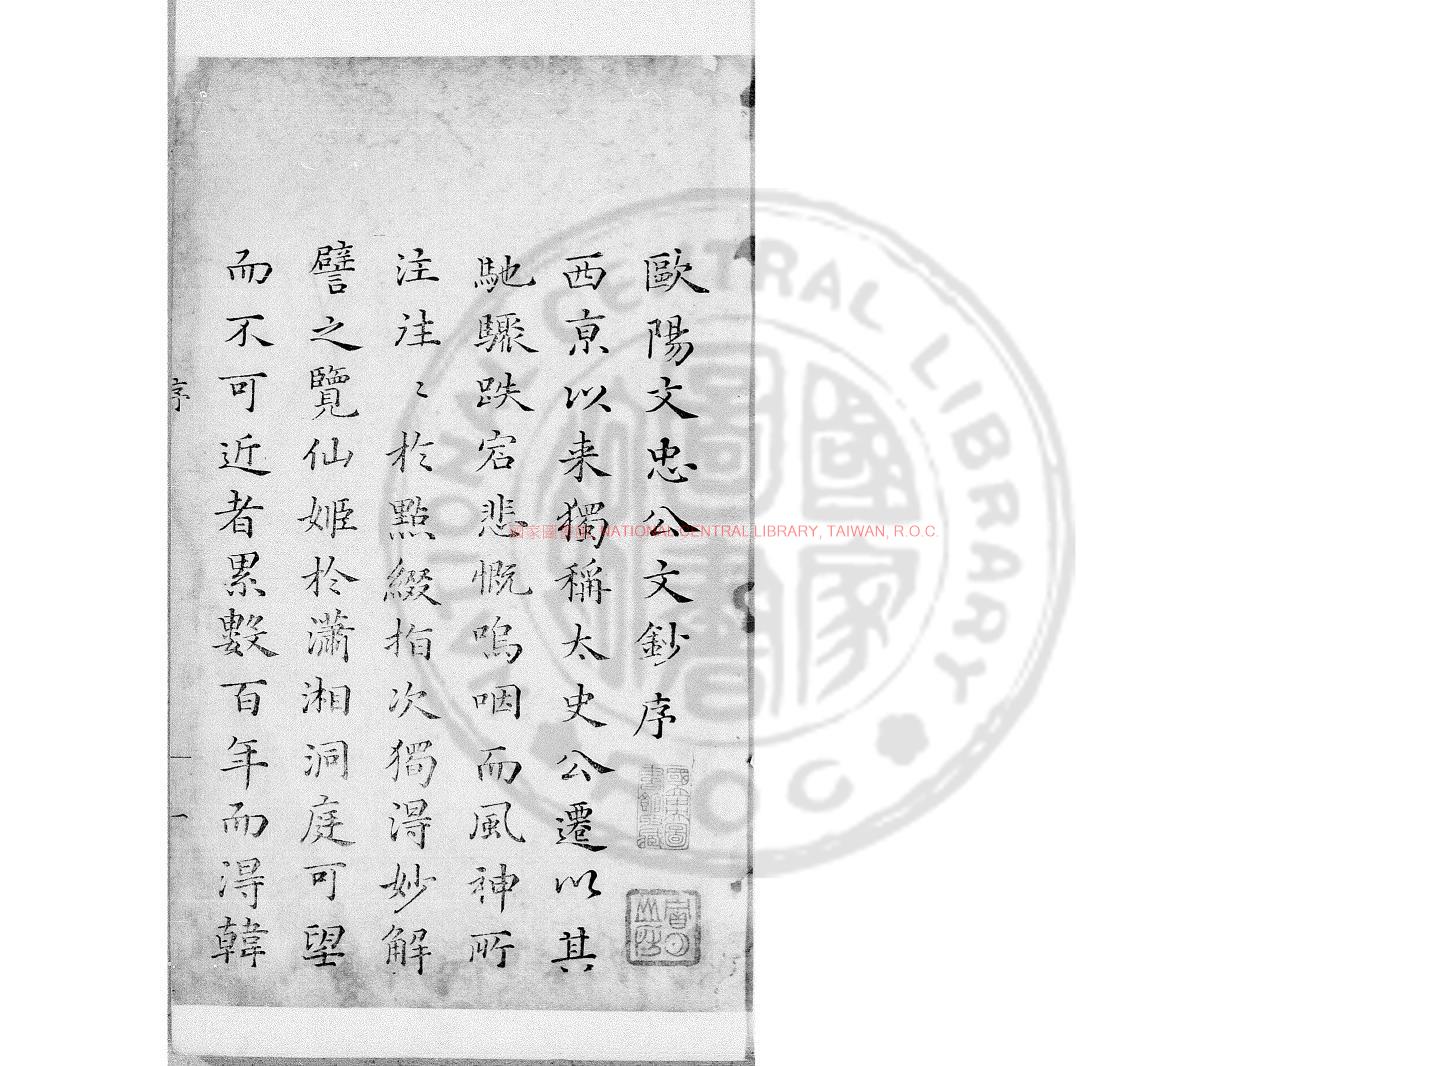 歐陽文忠公文鈔序
西京以来獨稱太史公遷以其
馳驟跌宕悲慨嗚咽而風神所
注往〻於點綴指次獨得妙解
譬之覽仙姬於瀟湘洞庭可望
而不可近者累數百年而得韓
序
一
國家圖書館 NATIONAL CENTRAL LIBRARY, TAIWAN, R.O.C.
NATIONAL CENTRAL LIBRARY
ROC
國家圖書